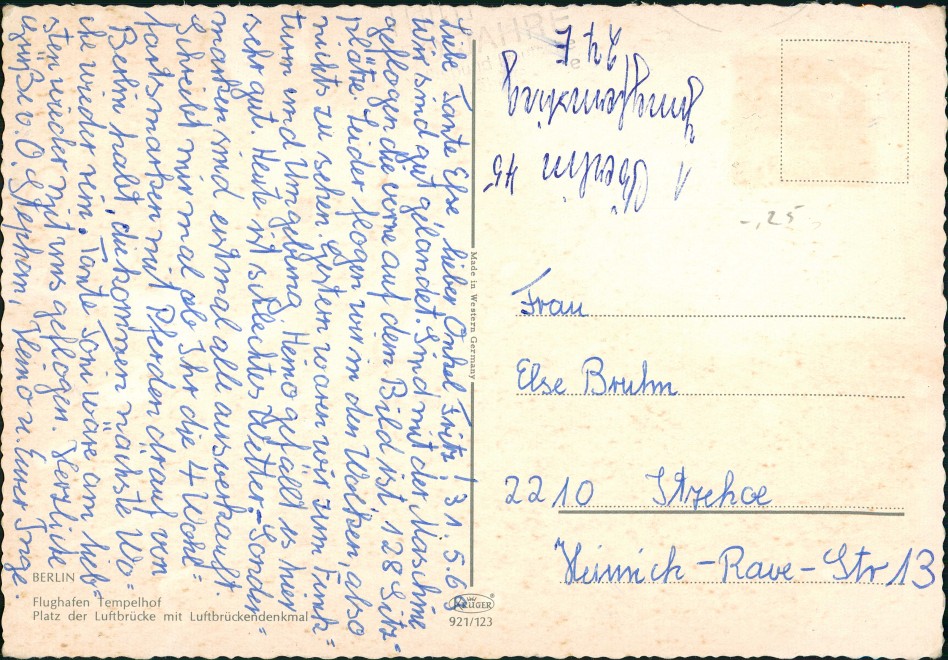 Liebe Tante Else, lieber Onkel Fritz! 31.5.69
Wir sind gut gelandet. Sind mit der Maschine
geflogen die vorne auf dem Bild ist. 128 Sitz-
plätze. Leider flogen wir in den Wolken, also
nichts zu sehen. Gestern waren wir zum Funk-
turm und Umgebung. Heino gefällt es hier
sehr gut. Heute ist schlechtes Wetter. Sonder-
marken sind erstmal alle ausverkauft.
Schreibt mir mal ob Ihr die 4 Wohl-
fartsmarken mit Pferden drauf von
Berlin habt, die kommen nächste Wo-
che wieder rein. Tante Toni wäre am lieb-
sten wieder mit uns geflogen. Herzliche
Grüße v. O. Stephan, Heino u. Eurer Inge.
1 Berlin 45
24 F
Frau
Else Bruhn
2210 Itzehoe
Heinrich-Rave-Str 13
-,25
Made in Western Germany
BERLIN
Flughafen Tempelhof
Platz der Luftbrücke mit Luftbrückendenkmal
KRÜGER
921/123